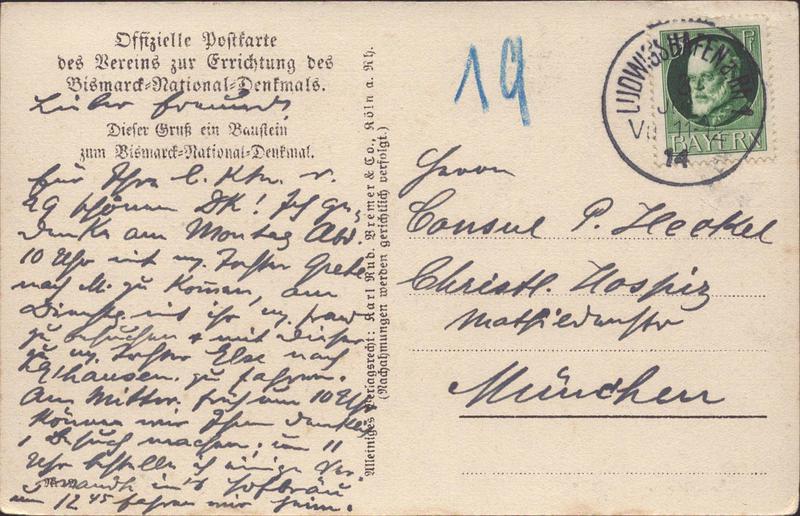 Offizielle Postkarte
des Vereins zur Errichtung des
Bismarck-National-Denkmals.
Lieber Freund!
Dieser Gruß ein Baustein
zum Bismarck-National-Denkmal.
für Ihre l. Ktn. v.
29 schönen DK! Ich ge-
denke am Montag Abd.
10 Uhr mit m. Tochter Grete
nach M. zu kommen, am
Dienstag mit ihr m. Frau
zu besuchen & mit dieser
zu m. Tochter Else nach
hausen zu fahren.
Am Mittw. früh um 10 Uhr
können wir Ihnen
1 Besuch machen; um 11
Uhr bestelle ich einige Ver-
wandte in's Hofbräu
um 12 45 fahren wir heim.
Alleiniges Verlagsrecht: Karl Rud. Bremer & Co., Köln a. Rh.
(Nachahmungen werden gerichtlich verfolgt.)
19
LUDWIGSHAFEN a. RH.
VII 11-12
14
BAYERN
Herrn
Consul P. Heckel
Christl. Hospiz
Mathildenstr
München